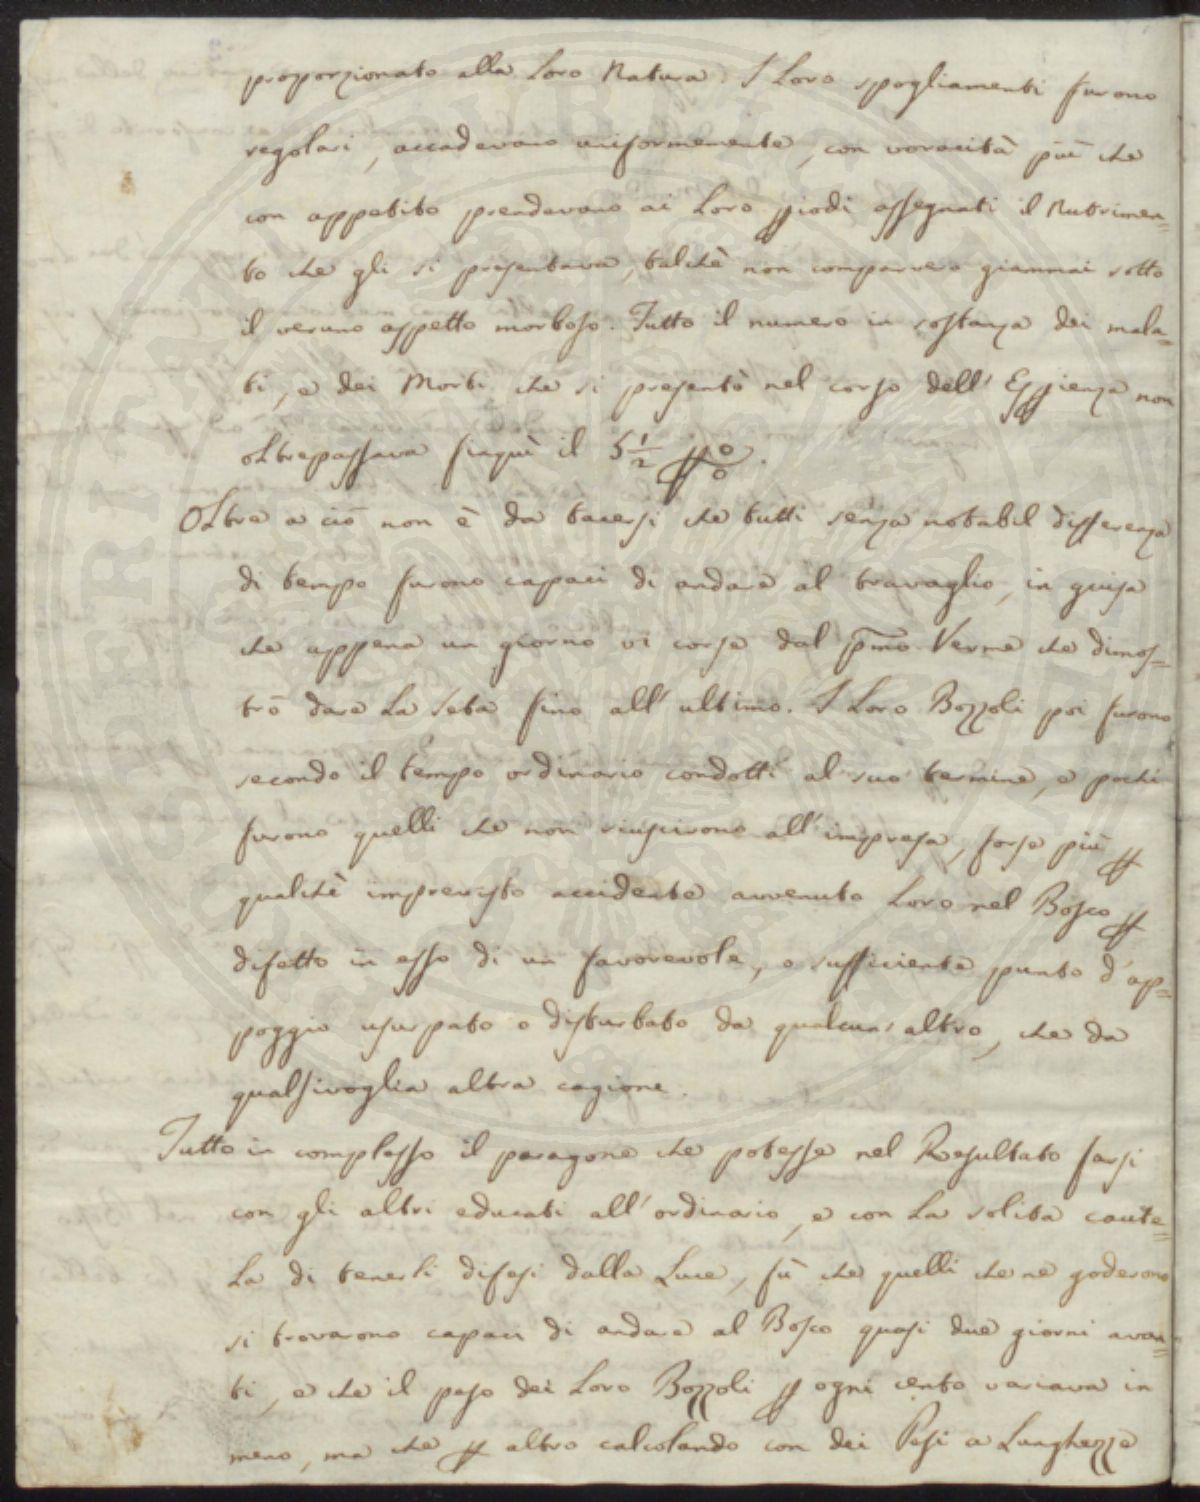 proporzionato alla Loro Natura. I Loro spogliamenti furono
regolari, accadevano uniformemente, con voracità più che
con appetito prendevano ai Loro ꝑiodi assegnati il Nutrimen=
to che gli si presentava, talchè non comparvero giammai sotto
il veruno aspetto morboso. Tutto il numero in sostanza dei mala=
ti, e dei Morti che si presentò nel corso dell' Esꝑienza non
oltrepassava finquì il 5 1/2 ꝑ %.
Oltre a ciò non è da tacersi che tutti senza notabil differenza
di tempo furono capaci di andare al travaglio, in guisa
che appena un giorno vi corse dal pmo. Verme che dimos=
trò dare la Seta fino all' ultimo. I Loro Bozzoli poi furono
secondo il tempo ordinario condotti al suo termine, e pochi
furono quelli che non riuscirono all' impresa, forse più ꝑ
qualchè imprevisto accidente avvenuto Loro nel Bosco ꝑ
difetto in esso di un favorevole, o sufficiente punto d' ap=
poggio usurpato o disturbato da qualcun' altro, che da
qualsivoglia altra cagione.
Tutto in complesso il paragone che potesse nel Resultato farsi
con gli altri educati all' ordinario, e con La solita caute=
La di tenerli difesi dalla Luce, fù che quelli che ne goderono
si trovarono capaci di andare al Bosco quasi due giorni avan=
ti, e che il peso dei Loro Bozzoli ꝑ ogni cento variava in
meno, ma che ꝑ altro calcolando con dei Pesi a Lunghezza
SUPERIANTIÆ PUBLICÆ